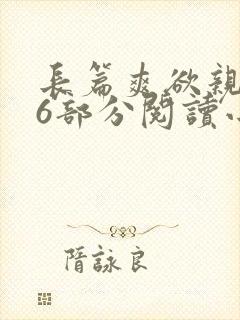 長篇爽欲親
6部分閱讀小
隋詠良